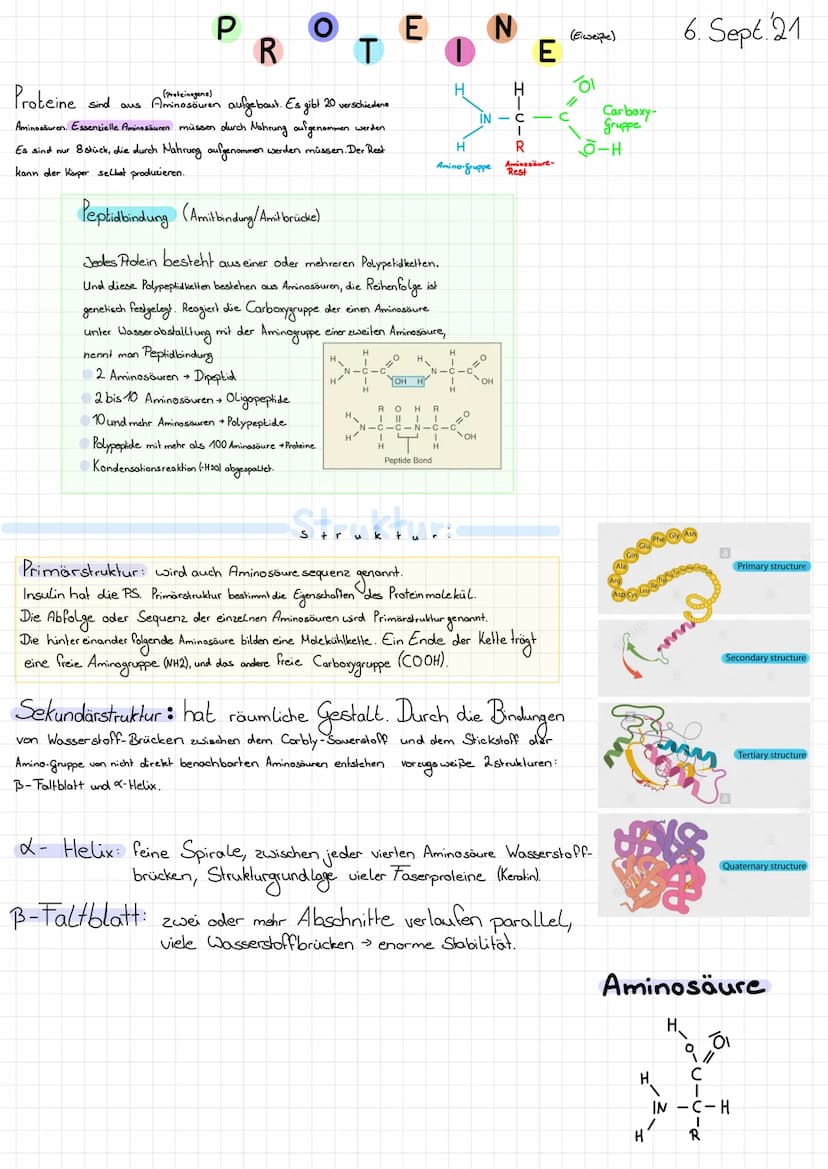 PROTEINE (Eiweiße) 6. Sept.'21
(Proteinogene)
Proteine sind aus Aminosäuren aufgebaut. Es gibt 20 verschiedene
Aminosäuren. Essenzielle Aminosäuren müssen durch Nahrung aufgenommen werden
Es sind nur 8 stück, die durch Nahrung aufgenommen werden müssen. Der Rest
kann der Körper selbst produzieren.
H H O
IN – C – C
H R O–H
Carboxy-
gruppe
Amino-gruppe
Aminosäure-
Rest
Peptidbindung (Amitbindung/Amitbrücke)
Jedes Protein besteht aus einer oder mehreren Polypetidketten.
Und diese Polypeptidketten bestehen aus Aminosäuren, die Reihenfolge ist
genetisch festgelegt. Reagiert die Carboxygruppe der einen Aminosäure
unter Wasserabstalltung mit der Aminogruppe einer zweiten Aminosäure,
nennt man Peptidbindung
2 Aminosäuren → Dipeptid
2 bis 10 Aminosäuren → Oligopeptide
10 und mehr Aminosäuren → Polypeptide
Polypeptide mit mehr als 100 Aminosäure → Proteine
Kondensationsreaktion (-H2O) abgespaltet.
H H O H H O
N–C–C N–C–C
H H OH H H OH
R O H R O
H
N–C–C–N–C–C
H H H OH
Peptide Bond
Struktur:
Struktur:
Primärstruktur: wird auch Aminosäuresequenz genannt.
Insulin hat die PS. Primärstruktur bestimmt die Eigenschaften des Proteinmolekül.
Die Abfolge oder Sequenz der einzelnen Aminosäuren wird Primärstruktur genannt.
Die hintereinander folgende Aminosäure bilden eine Molekühlkette. Ein Ende der Kette trägt
eine freie Aminogruppe (NH2), und das andere freie Carboxygruppe (COOH).
Sekundärstruktur: hat räumliche Gestalt. Durch die Bindungen
von Wasserstoff-Brücken zwischen dem Carbly-Sauerstoff und dem Stickstoff der
Amino-Gruppe von nicht direkt benachbarten Aminosäuren entstehen vorzugsweiße 2 strukturen:
β-Faltblatt und α-Helix.
α- Helix: feine Spirale, zwischen jeder vierten Aminosäure Wasserstoff-
brücken, Strukturgrundlage vieler Faserproteine (Keratin).
β-Faltblatt: zwei oder mehr Abschnitte verlaufen parallel,
viele Wasserstoffbrücken → enorme Stabilität.
Gln Glu Phe Gly Asn
Ala
Arg
Asp Cys Leu
Primary structure
Secondary structure
Tertiary structure
Quaternary structure
Aminosäure
H
O O
C
H
IN – C – H
H R